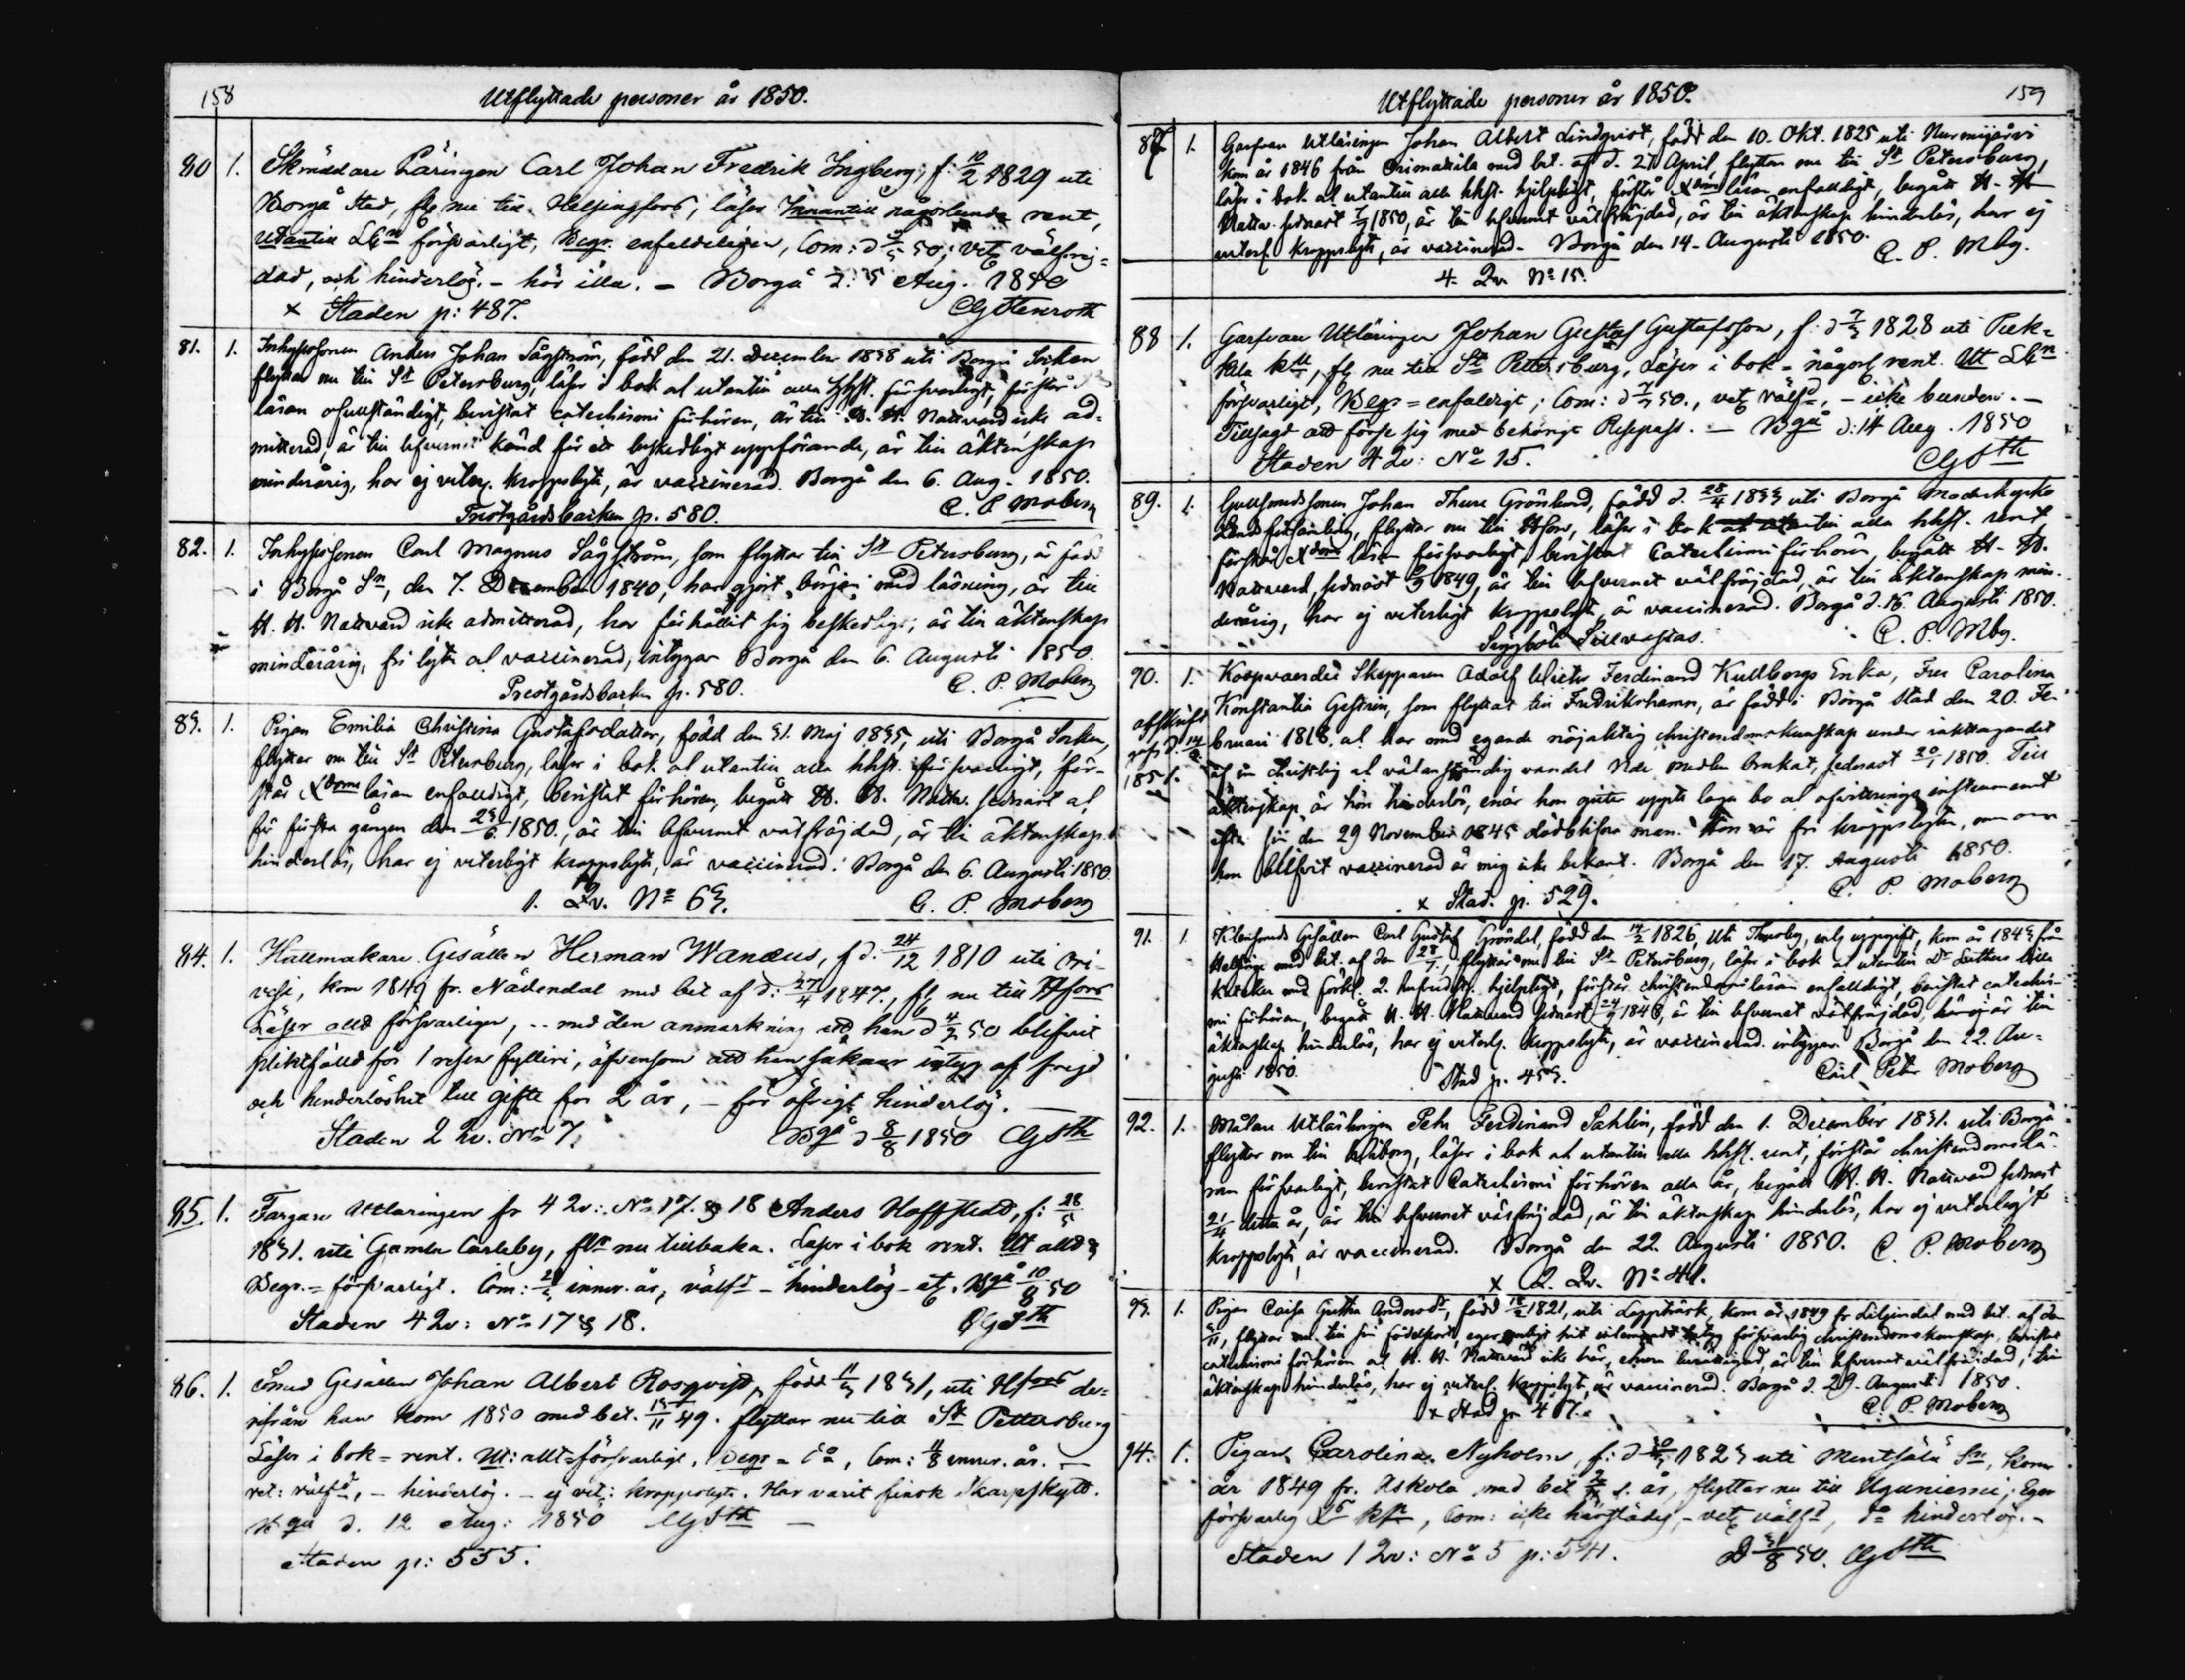 158
Utflyttade personer år 1850.
80 1. Skräddare Läringen Carl Johan Fredrik Ingberg, f. 10/2 1829 uti
Borgå Stad, nu till Helsingfors, läser Innantill någorlunda rent,
utantill försvarligt, Begr. enfaldeligen, Com: 50; välfrej=
dad, och hinderlös. – hör illa. – Borgå d. 5 Aug. 1850
x Staden p: 487. CGStenroth
81. 1. Inhysessonen Anders Johan Sågström, född den 21. December 1838 uti Borgå Socken
flyttar nu till St Petersburg, läser i bok och utantill alla hhst. försvarligt, förstår
läran ofullständigt, bevistat catechismi förhören, är till H. H. Nattvard icke ad-
mitterad, är till lefvernet känd för ett beskedligt uppförande, är till äktenskap
minderårig, har ej veterl. kroppslyte, är vaccinerad. Borgå den 6. Aug. 1850.
Prestgårdsbacken p. 580. C. P. Moberg
82. 1. Inhysessonen Carl Magnus Sågström, som flyttar till St Petersburg, är född
i Borgå Sn, den 7. December 1840, har gjort början med läsning, är till
H. H. Nattvard icke admitterad, har förhållit sig beskedligt, är till äktenskap
minderårig, fri lyte och vaccinerad, intygar Borgå den 6. Augusti 1850.
Prestgårdsbacken p. 580. C. P. Moberg
83. 1. Pigan Emilia Christina Gustafsdotter, född den 31. Maj 1835, uti Borgå Socken,
flyttar nu till St Petersburg, läser i bok och utantill alla hhst. försvarligt, för-
står Xdoms läran enfaldigt, bevistat förhören, begått H. H. Nattv. sednast och
för första gången den 23/6 1850., är till lefvernet välfräjdad, är till äktenskap
hinderlös, har ej veterligt kroppslyte, är vaccinerad. Borgå den 6. Augusti 1850.
1. Qv. No 63. C. P. Moberg
84. 1. Hattmakare Gesällen Herman Wanæus, f d. 24/12 1810 uti Ori-
vesi, kom 1849 fr. Nådendal med bet af d: 27/4 1847., fl nu till Hfors
Läser allt försvarligen, – med den anmärkning att han d 4/2 50 blifvit
pliktfälld för 1 resan fylleri, äfvensom att han saknar intyg af frejd
och hinderlöshet till gifte för 2 år, – för öfrigt hinderlös. –
Staden 2 Qv. No 7. Bgå d 8/8 1850 CGSth
85. 1. Färgare Utläringen fr 4 Qv: No 17. & 18 Anders Hoffstedt, f: 28/5
1831. uti Gamla Carleby, flr nu tillbaka. Läser i bok rent. Ut allt &
Begr. = försvarligt. Com: innev. år, välfd – hinderlös – Bgå 10/8 50
Staden 4 Qv: No 17 & 18. CGSth
86. 1. Smed Gesällen Johan Albert Rosqvist, född 1831, uti Hfors de-
rifrån han kom 1850 med bet. 49. flyttar nu till St Pettersburg
Läser i bok = rent. Ut: allt = försvarligt. Begr = do, Com: 8 innev. år. –
vet: välfd, – hinderlös. – ej vet: kroppslyte. Har varit finsk Skarpskytt.
Bgå d. 12 Aug: 1850 CGSth –
Staden p: 555.
Utflyttade personer år 1850.
159
87 1. Garfvare Utläringen Johan Albert Lindqvist, född den 10. Okt. 1825 uti Nurmijärvi
kom år 1846 från Orimattila med bet. af d. 27 April, flyttar nu till St Petersburg,
läser i bok och utantill alla hhst. hjelpligt, förstår Xdoms läran enfaldigt, begått H. H.
Nattv. sednast 1850, är till lefvernet välfräjdad, är till äktenskap hinderlös, har ej
veterl. kroppslyte, är vaccinerad. Borgå den 14. Augusti 1850. C. P. Mbg.
4. Qv. No 15.
88 1. Garfvare Utläringen Johan Gustaf Gustafsson, f. d 1828 uti Puk=
kila kll, fl nu till St Pettersburg, Läser i bok = någorl rent. Ut
försvarligt, Begr = enfaldigt; Com: 50., välfd, – icke bunden. –
Tillsagd att förse sig med behörigt Respass. – Bgå d: 14 Aug. 1850
Staden 4 Qv: No 15. CGSth
89. 1. Gullsmedssonen Johan Thure Grönlund, född d. 28/4 1833 uti Borgå Moderkyrko
Landsförsamling, flyttar nu till Hfors, läser i bok och utantill alla hhst. rent,
förstår Xdoms läran försvarligt, bevistat Catechismi förhören, begått H. H.
Nattvard, sednast 1849, är till lefvernet välfräjdad, är till äktenskap min-
derårig, har ej veterligt kroppslyte, är vaccinerad. Borgå d. 16. Augusti 1850.
Seggböle Sillvastas. C. P. Mbg.
90. 1. Koopvaerdie Skepparen Adolf Victor Ferdinand Kullbergs Enka, Fru Carolina
Konstantia Gestrin, som flyttat till Fredrikshamn, är född i Borgå Stad den 20. Fe-
bruari 1818, och har med egande nöjaktig christendomskunskap under iakttagandet
af en christlig och välanständig vandel sednast 1850. Till
äktenskap är hon hinderlös, enär hon gittar uppte laga bo och afvittrings instrument
efter sin den 29 November 1845 dödblifne man. Hon är fri kroppslyten, men om
hon blifvit vaccinerad är mig icke bekant. Borgå den 17. Augusti 1850.
x Stad. p. 529. C. P. Moberg
1851.
91. 1 Kleinsmeds Gesällen Carl Gustaf Gröndal, född den 1826, uti Thusby, enl. uppgift, kom år 1843 från
Helsinge med bet. af den flyttar nu till St Petersburg, läser i bok och utantill Dr Luthers lilla
kateches med förkl. hjelpligt, förstår christendomsläran enfaldigt, bevistat catechis-
mi förhören, begått H. H. Nattvard sednast 1848, är till lefvernet välfräjdad, är till
äktenskap hinderlös, har ej veterl. kroppslyte, är vaccinerad. intygar Borgå den 22. Au-
gusti 1850. Stad p. 453. Carl Petr Moberg
92. 1. Målare Utläringen Pehr Ferdinand Sahlin, född den 1. December 1831. uti Borgå
flyttar nu till Wiborg, läser i bok och utantill alla hhst. rent, förstår christendomslä-
ran försvarligt, bevistat Catechismi förhören alla år, begått H. H. Nattvard sednast
21/4 detta år, är till lefvernet välfräjdad, är till äktenskap hinderlös, har ej veterligt
kroppslyte, är vaccinerad. Borgå den 22. Augusti 1850. C. P. Moberg
x 2. Qv. No 41.
93. 1. Pigan Caisa Greta Andersdr, född 1821, uti Lappträsk, kom år 1849 fr Liljendal med bet. af den
flyttar nu till sin födelseort, eger försvarlig christendomskunskap, bevistat
catechismi förhören och H. H. Nattvard icke här, är till lefvernet välfräjdad, till
äktenskap hinderlös, har ej veterl. kroppslyte, är vaccinerad. Borgå d. 29. Augusti 1850.
x Stad p 407. C. P. Moberg
94. 1. Pigan Carolina Nyholm, f: d 1823 uti Mentsälä Sn, kom
år 1849 fr. Askola med bet s. år, flyttar nu till Uguniemi; Eger
försvarlig Com: icke härstädes, – välfd, do hinderlös. –
Staden 1 Qv: No 5 p: 541. D 31/8 50. CGSth